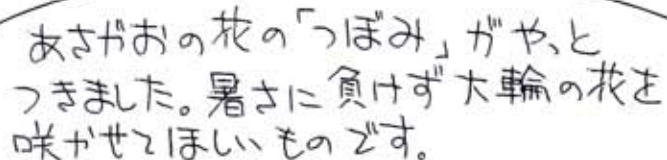 あさがおの花の「つぼみ」がやっと
つきました。暑さに負けず大輪の花を
咲かせてほしいものです。